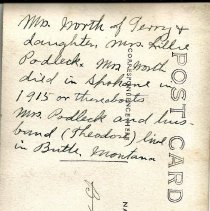 Mrs. Worth of Terry &
daughter, Mrs. Lillie
Podleck. Mrs Worth
died in Spokane in
1915 or thereabouts
Mrs. Podleck and hus-
band (Theodore) live
in Butte, Montana
POST CARD
CORRESPONDENCE HERE